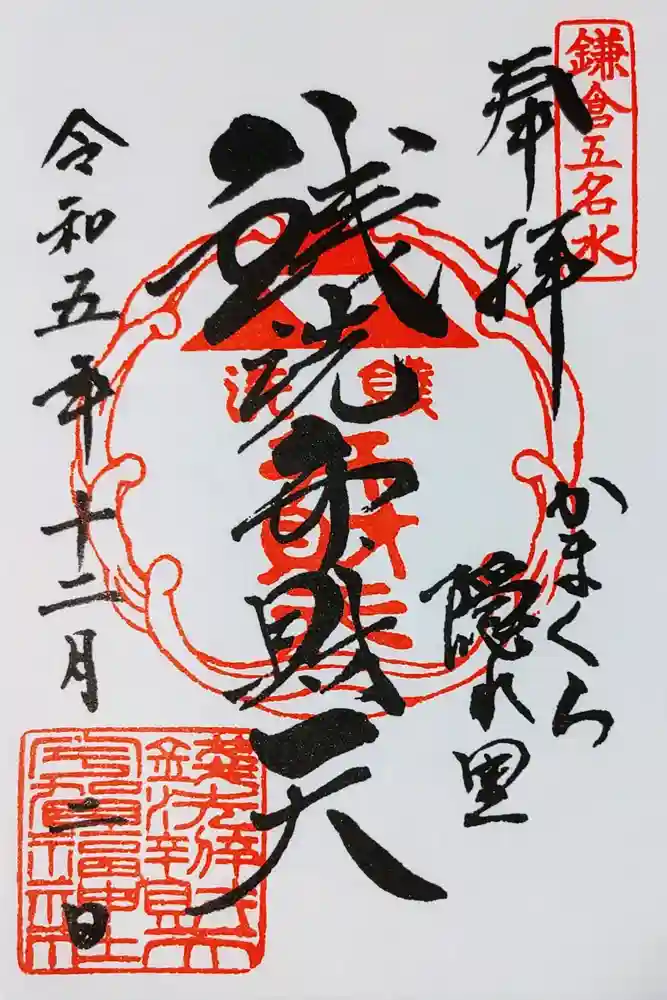 鎌倉五名水
奉拝
かまくら
隠れ里
銭洗弁財天
銭洗
令和五年十二月二日